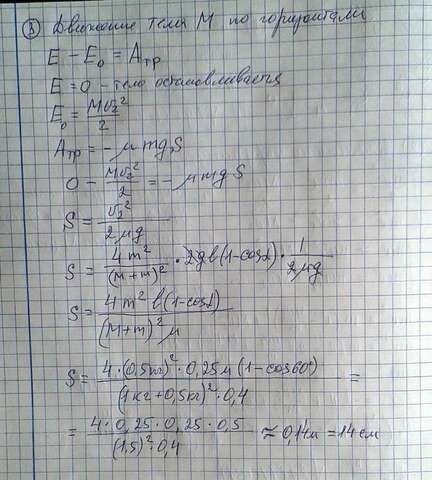 ③ Движение тела M по горизонтали
E - E₀ = Aтр
E = 0 - тело останавливается
E₀ = Mv₂²/2
Aтр = - μ mg S
0 - Mv₂²/2 = - μ mg S
S = v₂²/2μg
S = 4m²/(M+m)² · 2gl(1-cosα) · 1/2μg
S = 4m² l(1-cosα)/(M+m)² μ
S = 4·(0,5кг)²·0,25м(1-cos60°)/(1кг+0,5кг)²·0,4 =
= 4·0,25·0,25·0,5/(1,5)²·0,4 ≈ 0,14м = 14см